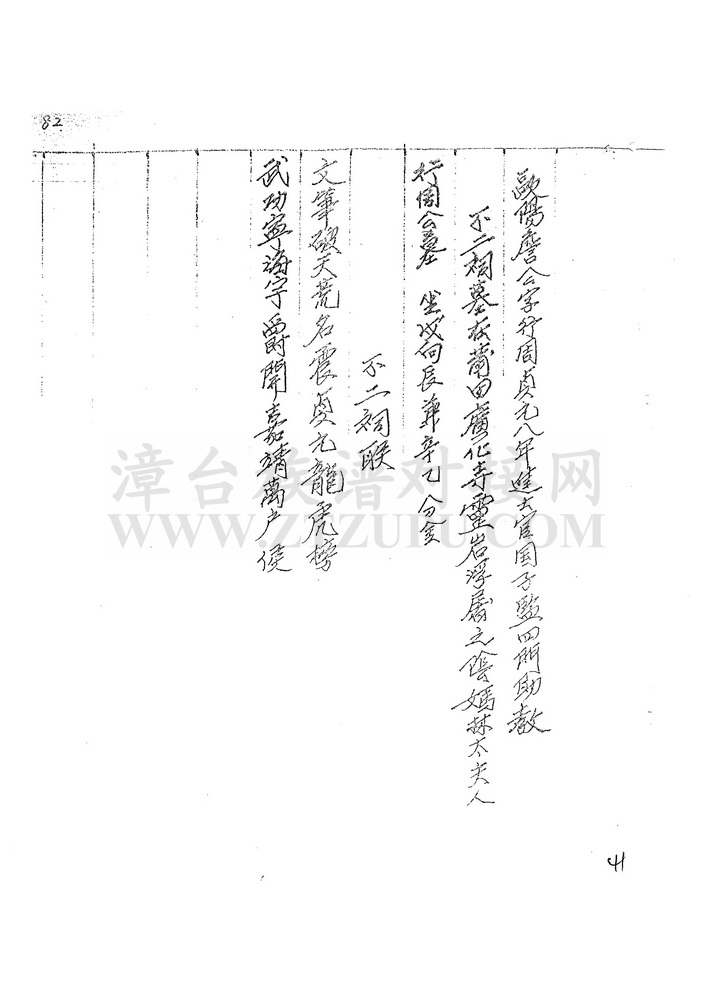 82
歐陽詹公字行周貞元八年進士官国子監四門助教
不二祠墓在莆田廣化寺靈岩浮屠之陰媽林太夫人
行周公墓 坐戌向辰兼辛乙分金
不二祠联
文筆破天荒名震貞元龍虎榜
武功寧海宇爵開嘉靖萬户侯
漳台族谱对接网
WWW.ZTZUPU.COM
41